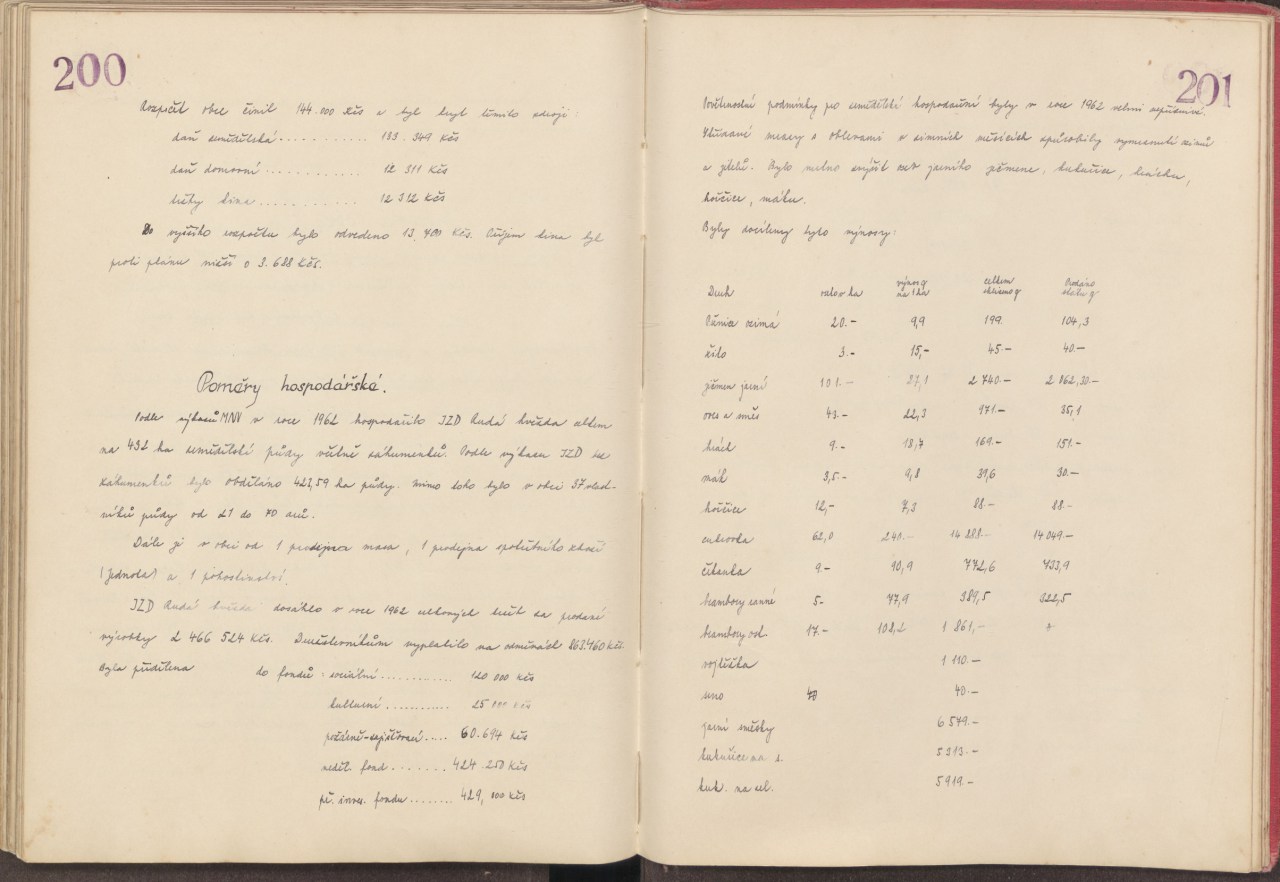 200
Rozpočet obce činil 144.000 Kčs a byl kryt těmito zdroji:
daň zemědělská........... 133.349 Kčs
daň domovní............ 12 311 Kčs
tržby kina........... 12 312 Kčs
Do vyššího rozpočtu bylo odvedeno 13.400 Kčs. Příjem kina byl
proti plánu nižší o 3.688 Kčs.
Poměry hospodářské.
Podle výkazů MNV v roce 1962 hospodařilo JZD Rudá hvězda celkem
na 432 ha zemědělské půdy včetně záhumenků. Podle výkazu JZD bez
záhumenků bylo obděláno 423,59 ha půdy. Mimo toho bylo v obci 37 vlast-
níků půdy od 21 do 70 arů.
Dále je v obci 1 prodejna masa, 1 prodejna spotřebního zboží
(Jednota) a 1 pohostinství.
JZD Rudá hvězda dosáhlo v roce 1962 celkových tržeb za prodané
výrobky 2 466 524 Kčs. Družstevníkům vyplatilo na odměnách 863.460 Kčs.
Byla přidělena do fondů: sociální............ 120 000 Kčs
kulturní........... 25 000 Kčs
požárně-zajišťovací..... 60.694 Kčs
neděl. fond....... 424.250 Kčs
př. inves. fondu........ 429,000 Kčs
201
Povětrnostní podmínky pro zemědělské hospodaření byly v roce 1962 velmi nepříznivé.
Střídavé mrazy s oblevami v zimních měsících způsobily vymrznutí ozimů
a jetelů. Bylo nutno zvýšit osev jarního ječmene, kukuřice, hrachu,
hořčice, máku.
Byly docíleny tyto výnosy:
Druh oseto v ha výnos q na 1 ha celkem sklizeno q Prodáno státu q
Pšenice ozimá 20.- 9,9 199. 104,3
žito 3.- 15,- 45.- 40.-
ječmen jarní 101.- 27,1 2 740.- 2 062,30.-
oves a směs 43.- 22,3 971.- 35,1
hrách 9.- 18,7 169.- 151.-
mák 3,5.- 9,8 31,6 30.-
hořčice 12,- 7,3 88.- 88.-
cukrovka 62,0 240.- 14 288.- 14 049.-
čekanka 9.- 90,9 772,6 733,9
brambory ranné 5- 77,9 389,5 322,5
brambory ost. 17.- 108,2 1 861,- "
vojtěška 1 110.-
seno 40 40.-
jarní směsky 6 549.-
kukuřice na z. 5 313.-
kuk. na sil. 5 919.-